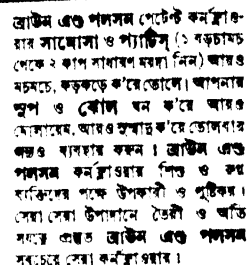 ব্রাউন এণ্ড পলসন পেটেণ্ট কর্নফ্লাও-
য়ার সামোসা ও প্যাটিস্ (১ বড়চামচ
থেকে ২ কাপ সাধারণ ময়দা নিন) আরও
মচমচে, কড়কড়ে ক'রে তোলে। আপনার
সুপ ও ঝোল ঘন ক'রে আরও
মোলায়েম, আরও সুস্বাদু ক'রে তোলবার
জন্যও ব্যবহার করুন। ব্রাউন এণ্ড
পলসন কর্নফ্লাওয়ার শিশু ও রুগ্ন
ব্যক্তিদের পক্ষে উপকারী ও পুষ্টিকর।
সেরা সেরা উপাদানে তৈরী ও অতি
যত্নে প্রস্তুত ব্রাউন এণ্ড পলসন
সবচেয়ে সেরা কর্নফ্লাওয়ার।